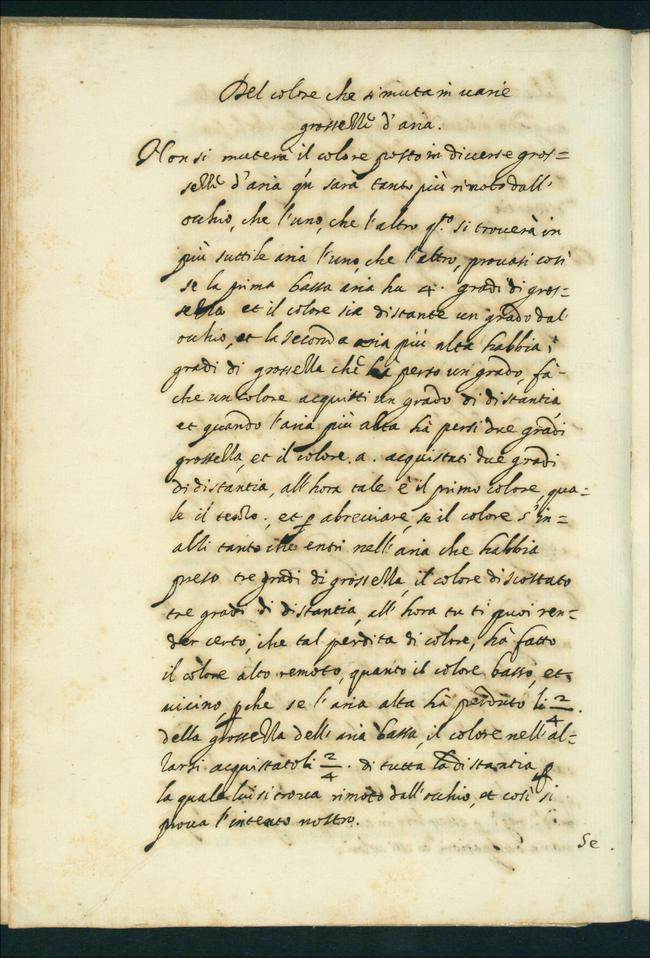 Del colore che si muta in varie
grosselli d'aria.
Non si muterà il colore posto in diverse gros=
selli d'aria qn sarà tanto più rimoto dall'
occhio, che l'uno, che l'altro q.to si troverà in
più suttile aria l'uno, che l'altro, provasi così
se la prima bassa aria ha 4. gradi di gros=
sella et il colore sia distante un grado dal
occhio, et la seconda aria più alta habbia
gradi di grossella chè hà perso un grado, fà-
che un colore acquisti un grado di distantia
et quando l'aria più alta hà persi due gradi
grossella, et il colore .a. acquistati due gradi
di distantia, all'hora tale è il primo colore, qua=
le il ; et p abreviare, se il colore s'in=
alsi tanto che entri nell'aria che habbia
preso tre gradi di grossella, il colore discostato
tre gradi di distantia, all'hora tu ti puoi ren=
der certo, che tal perdita di colore, hà fatto
il colore alto remoto, quanto il colore basso, et
vicino, pche se l'aria alta hà perduto li 2/4.
della grossella dell'aria bassa, il colore nell'al=
larsi acquistato li 2/4. di tutta la distantia p
la quale lui si trova rimoto dall'occhio, et così si
prova l'intento nostro.
Se.